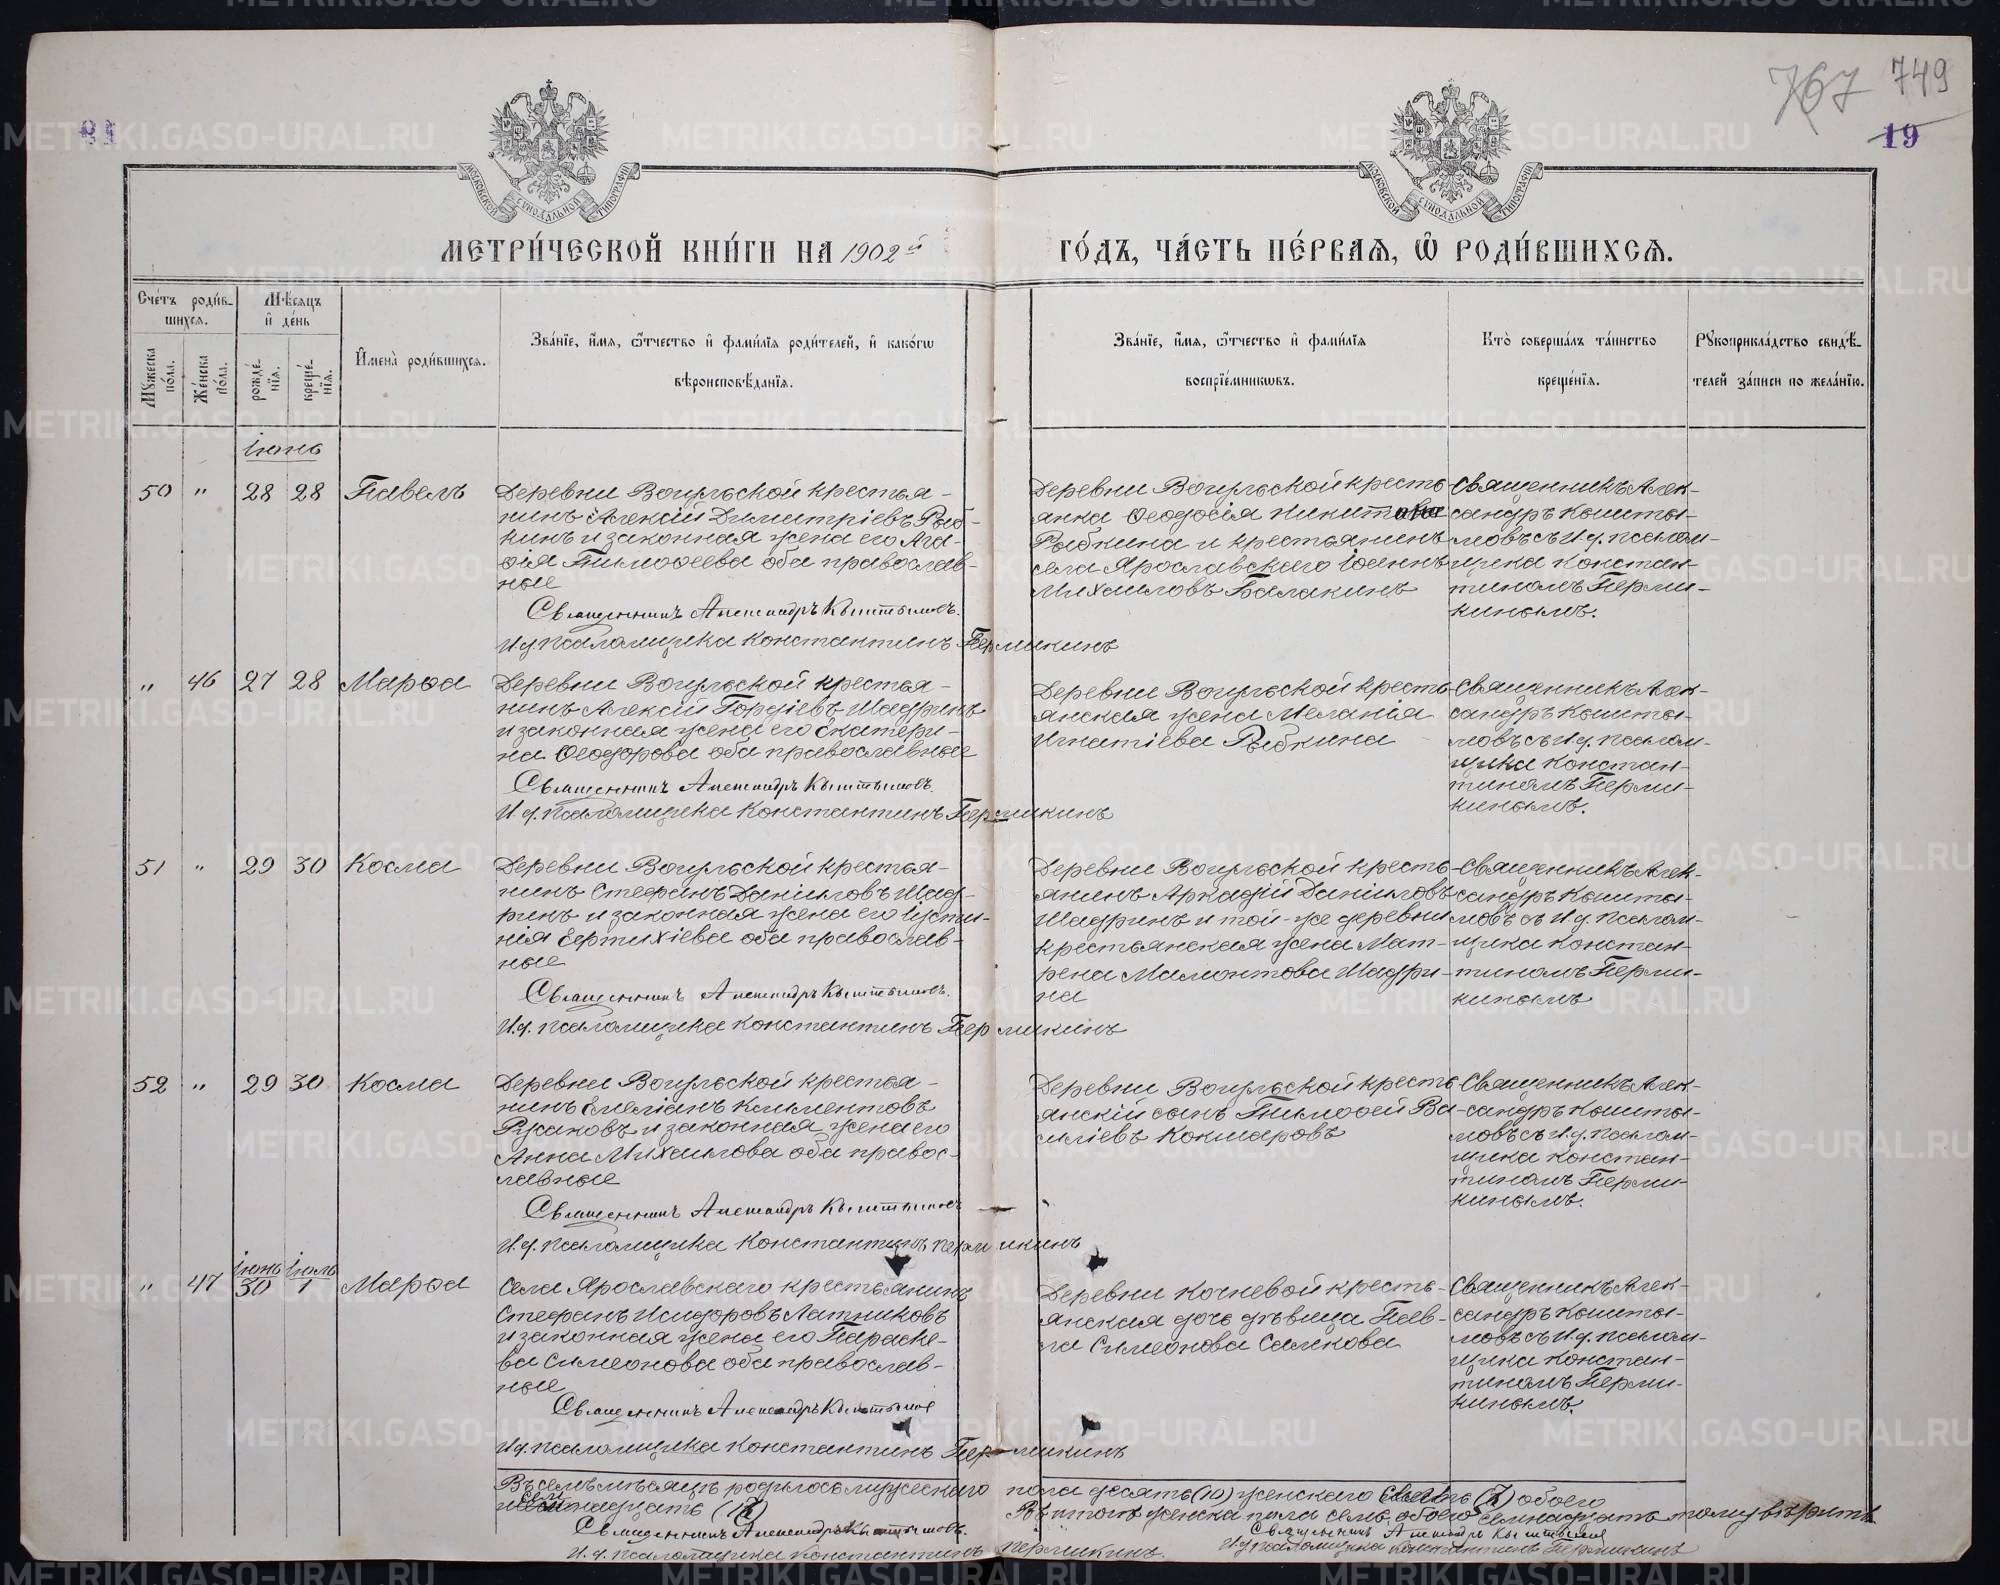 767 749
19
МОСКОВСКОЙ СѴНОДАЛЬНОЙ ТИПОГРАФІИ
МОСКОВСКОЙ СѴНОДАЛЬНОЙ ТИПОГРАФІИ
МЕТРИ́ЧЕСКОЙ КНИ́ГИ НА 1902й
ГО́ДЪ, ЧА́СТЬ ПЕ́РВАѦ, Ѽ РОДИ́ВШИХСѦ.
Сче́тъ роди́в-
шихсѧ.
Мꙋжеска по́ла.
Же́нска по́ла.
Мѣ́сѧцъ и҆ де́нь
рожде́-нїѧ.
креще́-нїѧ.
И҆мена̀ роди́вшихсѧ.
Зва́нїе, и҆́мѧ, ѻ҆́тчество и҆ фами́лїѧ роди́телей, и҆ како́гѡ
вѣроисповѣ́данїѧ.
Зва́нїе, и҆́мѧ, ѻ҆́тчество и҆ фами́лїѧ
воспрїе́мникѡвъ.
Кто̀ соверша́лъ та́инство
креще́нїѧ.
Рꙋкоприкла́дство свидѣ́-
телей за́писи по жела́нїю.
Іюнь
50 " 28 28 Павелъ
Деревни Вогульской крестья-
нинъ Алексій Димитріевъ Рыб-
кинъ и законная жена его Ага-
ѳія Тимоѳеева оба православ-
ные
Священникъ Александръ Кыштымовъ.
И.д. псаломщика Константинъ Пермикинъ
Деревни Вогульской кресть-
янка Ѳеодосія Никитина
Рыбкина и крестьянинъ
села Ярославскаго Іоаннъ
Михаиловъ Балакинъ
Священникъ Алек-
сандръ Кышты-
мовъ съ И.д. псалом-
щика Констан-
тиномъ Перми-
кинымъ.
" 46 27 28 Марѳа
Деревни Вогульской крестья-
нинъ Алексій Гордіевъ Шадринъ
и законная жена его Екатери-
на Ѳеодорова оба православные
Священникъ Александръ Кыштымовъ.
И.д. псаломщика Константинъ Пермикинъ
Деревни Вогульской кресть-
янская жена Меланія
Игнатіева Рыбкина
Священникъ Алек-
сандръ Кышты-
мовъ съ И.д. псалом-
щика Констан-
тиномъ Перми-
кинымъ.
51 " 29 30 Косма
Деревни Вогульской крестья-
нинъ Стефанъ Даніиловъ Шад-
ринъ и законная жена его Іусти-
нія Евтихіева оба православ-
ные
Священникъ Александръ Кыштымовъ.
И.д. псаломщика Константинъ Пермикинъ
Деревни Вогульской кресть-
янинъ Аркадій Даніиловъ
Шадринъ и той-же деревни
крестьянская жена Мат-
рена Мамонтова Шадри-
на
Священникъ Алек-
сандръ Кышты-
мовъ съ И.д. псалом-
щика Констан-
тиномъ Перми-
кинымъ
52 " 29 30 Косма
Деревни Вогульской крестья-
нинъ Емеліанъ Климентовъ
Русаковъ и законная жена его
Анна Михаилова оба правос-
лавные
Священникъ Александръ Кыштымовъ
И.д. псаломщика Константинъ Пермикинъ
Деревни Вогульской кресть
янскій сынъ Тимоѳей Ва-
силіевъ Кокшаровъ
Священникъ Алек-
сандръ Кышты-
мовъ съ И.д. псалом-
щика Констан-
тиномъ Перми-
кинымъ.
Іюнь Іюль
" 47 30 1 Марѳа
Села Ярославскаго крестьянинъ
Стефанъ Исидоровъ Латниковъ
и законная жена его Параске-
ва Симеонова оба православ-
ные
Священникъ Александръ Кыштымовъ
И.д. псаломщика Константинъ Пермикинъ
Деревни Кочневой кресть-
янская дочь дѣвица Пав-
ла Симеонова Самкова
Священникъ Алек-
сандръ Кышты-
мовъ съ И.д. псалом-
щика Констан-
тиномъ Перми-
кинымъ.
Въ семъ мѣсяцѣ родилось мужескаго пола десять (10) женскаго семь (7) обоего
семнадцать (17)
Въ итогѣ женска пола семь, обоего семнадцать тому вѣрить
Священникъ Александръ Кыштымовъ.
И.д. псаломщика Константинъ Пермикинъ.
Священникъ Александръ Кыштымовъ
И.д. псаломщика Константинъ Пермикинъ
METRIKI.GASO-URAL.RU